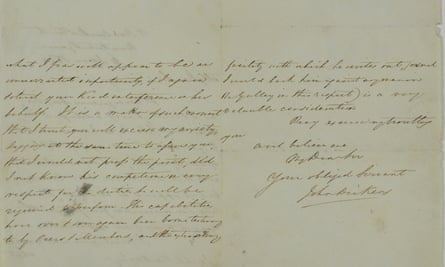 what I fear will appear to be an
unwarranted importunity, if I again
intend your kind interference on her
behalf. It is a matter of such moment
that I trust you will excuse my anxiety,
supposing at the same time to assure you,
that I would not press the point, did
I not know his competence in every
respect for the duties he will be
required to perform. His capabilities
have over & over again been borne testimony
to by Overs & Members, and the
facility with which he writes out,
I would back him against any man in
the Gallery in this respect) is a very
valuable consideration
Pray excuse my troubling
you
and believe me
My Dear Sir
Your obliged Servant
John Dickens